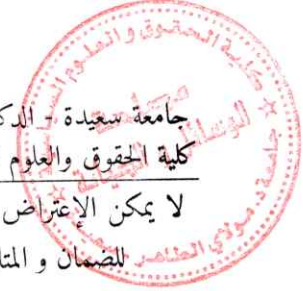 جامعة سعيدة - الدك
كلية الحقوق والعلوم
لا يمكن الإعتراض
للضمان و المتا
كلية الحقوق و العلوم السيا
جامعة د. مولاي الطاهر سعيدة